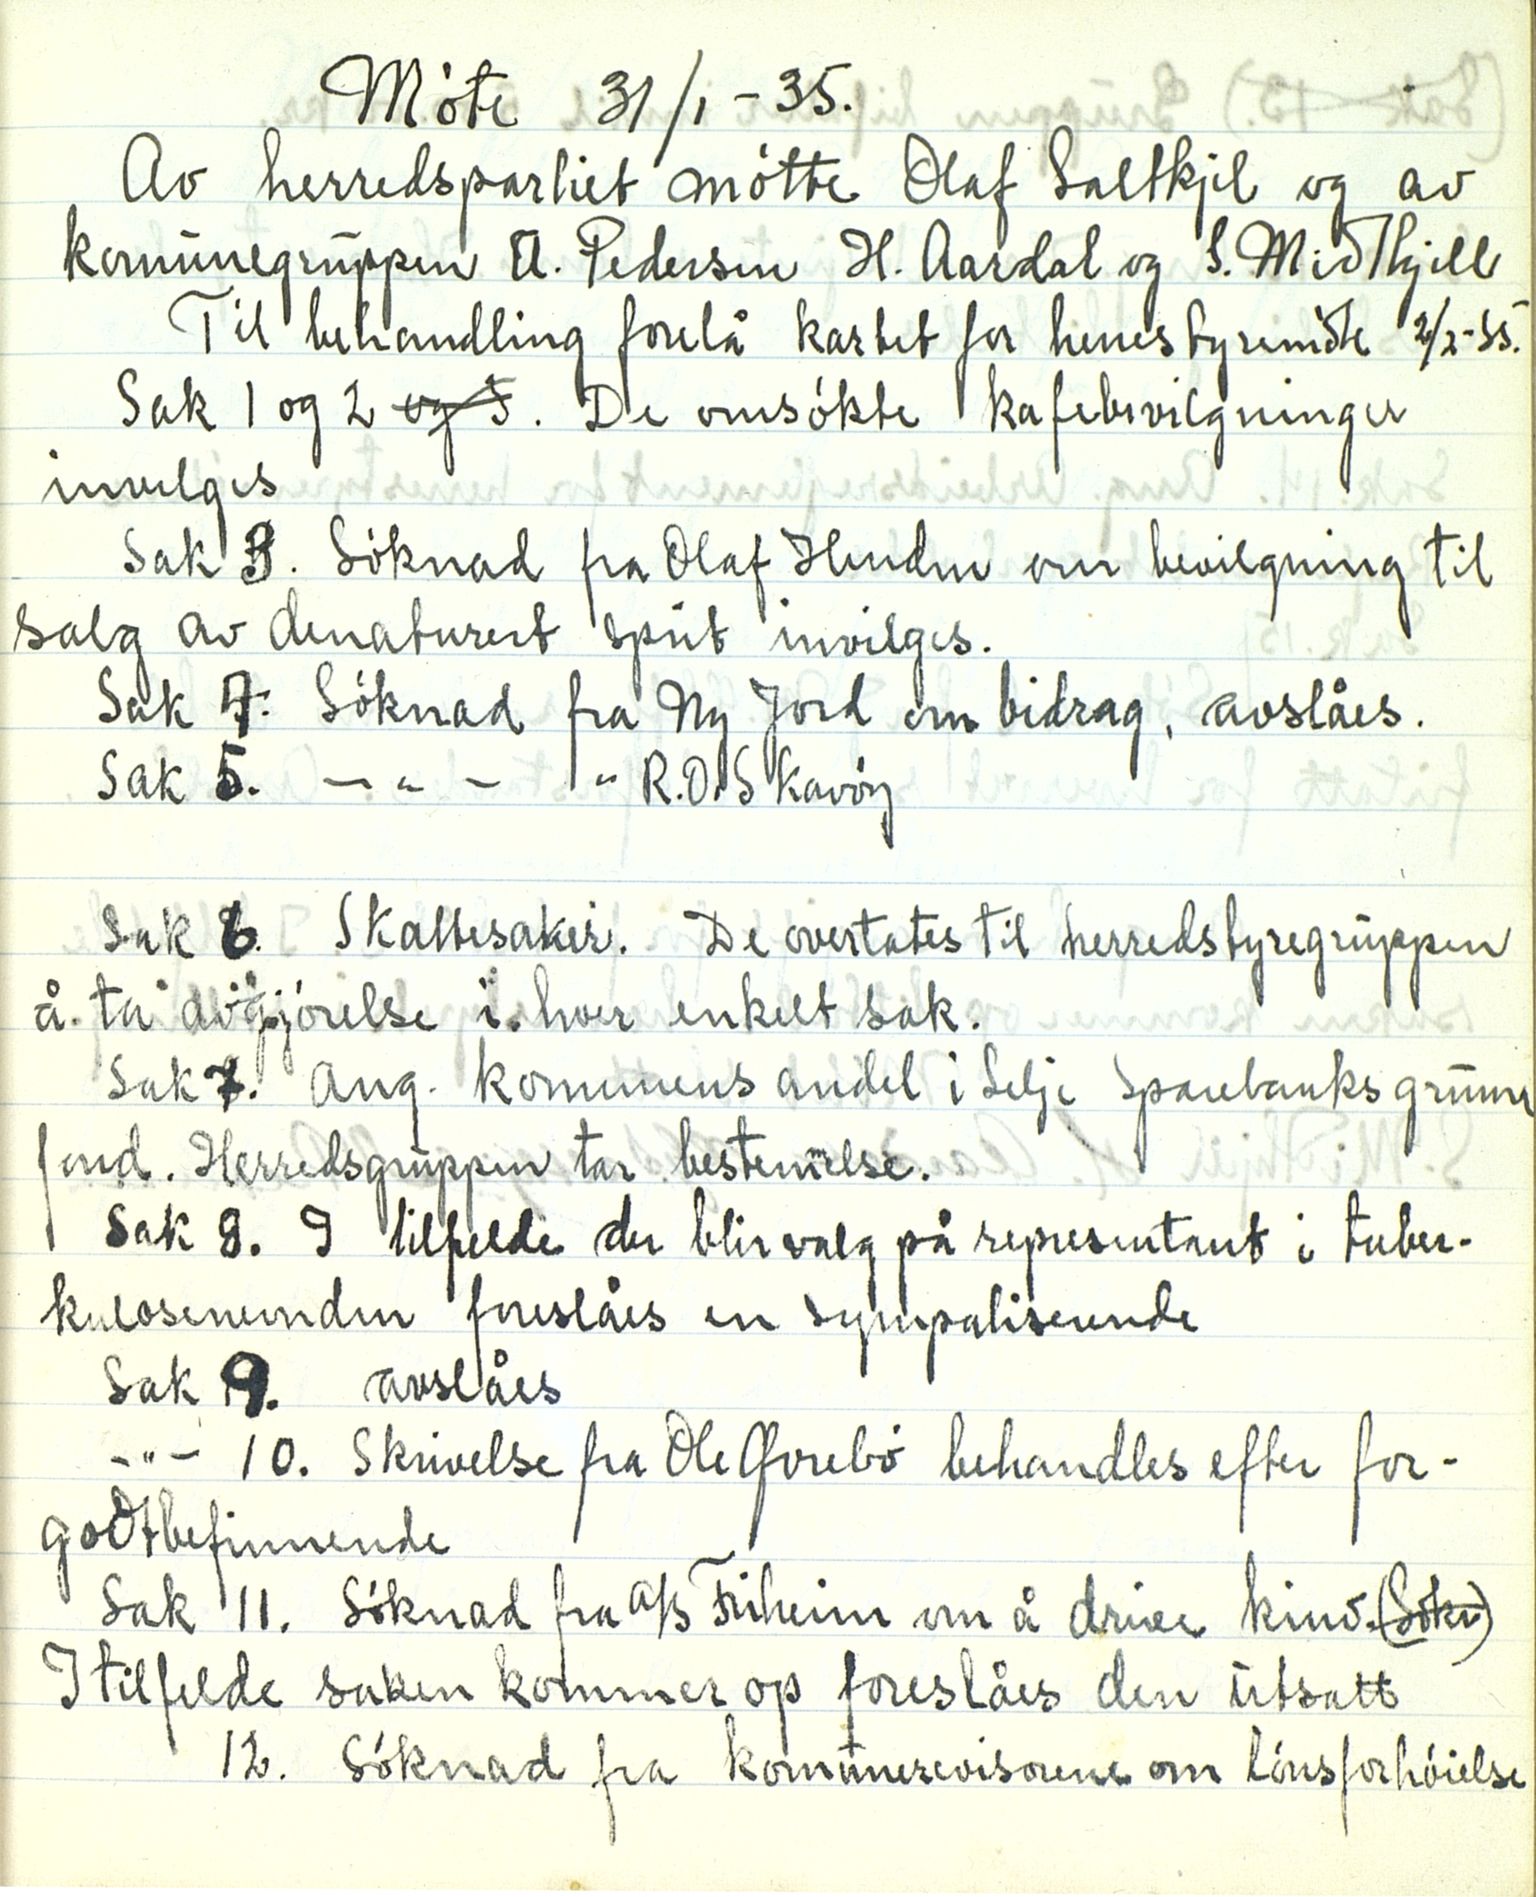 Möte 31/1 - 35.
Av herredspartiet mötte Olaf Saltkjel og av
komunegruppen A. Pedersen H. Aardal og S. Midthjell
Til behandling forelå kartet for herrestyremöte 2/2-35.
Sak 1 og 2 og 3. De omsökte kafebevilgninger
invilges
Sak 3. Söknad fra Olaf Hendèn om bevilgning til
salg av denaturert sprit invilges.
Sak 4. Söknad fra Ny Jord om bidrag, avslåes.
Sak 5. - " - " R.O. Skavöy
Sak 6. Skattesaker. De overlates til herredstyregruppen
å ta avgjörelse i hver enkelt sak.
Sak 7. Ang. kommunens andel i Selje Sparebanks grunn
fond. Herredsgruppen tar bestemelse.
Sak 8. I tilfelde der blir valg på representant i tuber-
kulosenemnden foreslåes en sympatiserende
Sak 9. avslåes
-"- 10. Skrivelse fra Ole Forebö behandles efter for-
godtbefinnende
Sak 11. Söknad fra A/S Friheim om å drive kino. (Söke)
I tilfelde saken kommer op foreslåes den utsatt
12. Söknad fra komunerevisorene om lönsforhöielse